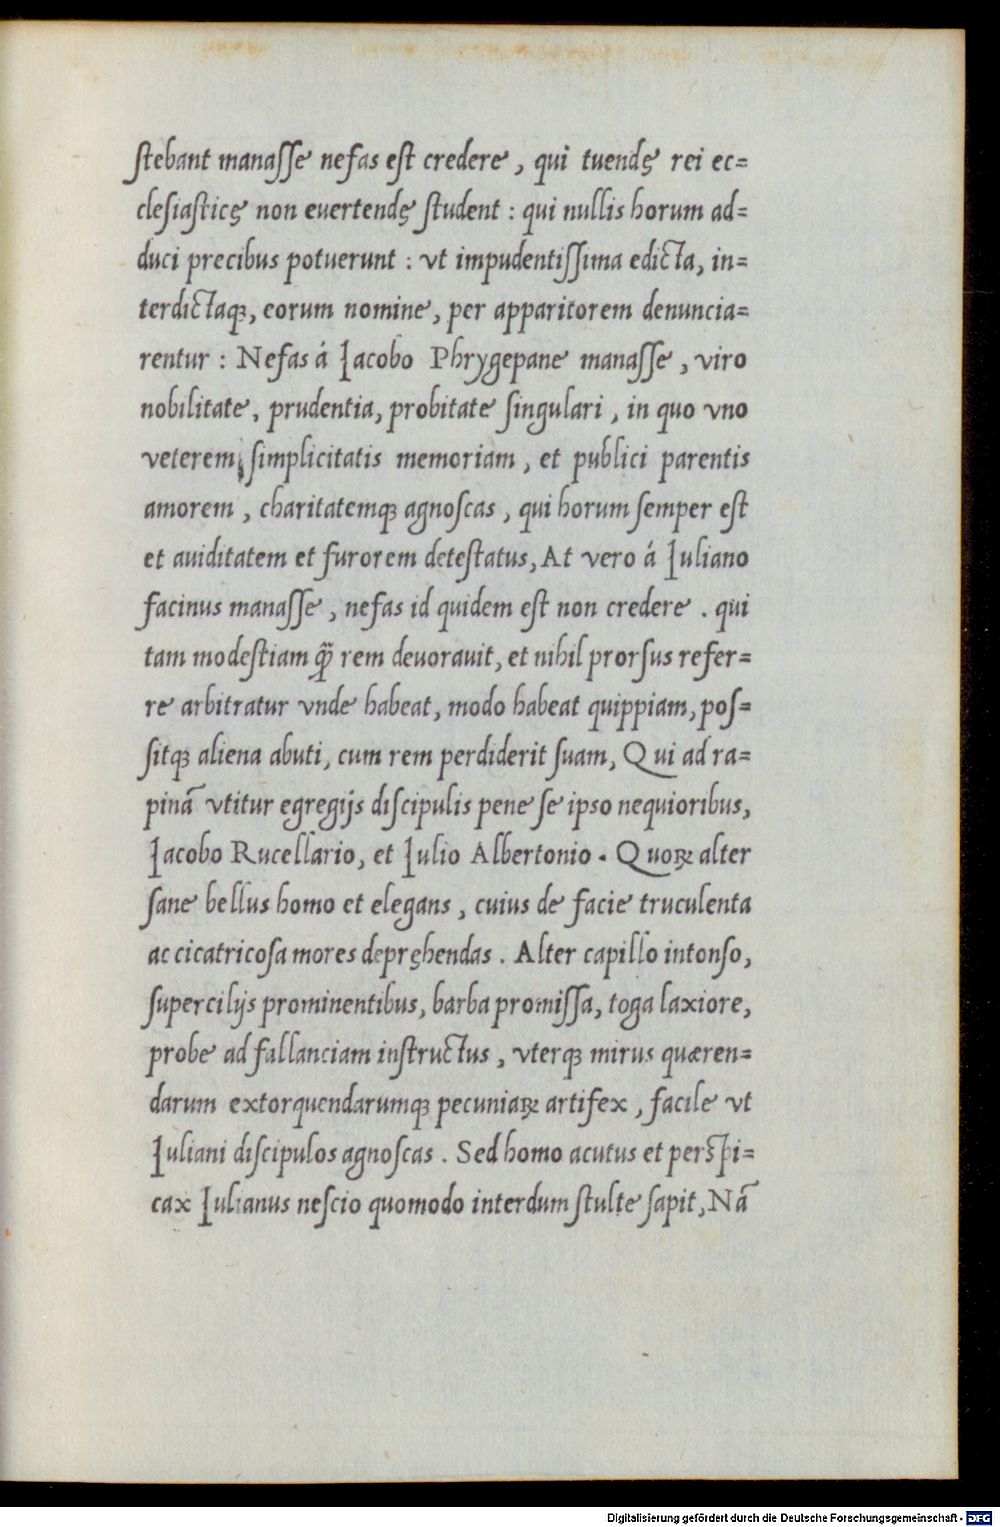 ſtebant manaſſe nefas eſt credere, qui tuendę rei ec=
cleſiaſticę non euertendę ſtudent : qui nullis horum ad=
duci precibus potuerunt : vt impudentiſſima edicta, in=
terdictaqꝫ, eorum nomine, per apparitorem denuncia=
rentur : Nefas á Iacobo Phrygepane manaſſe, viro
nobilitate, prudentia, probitate ſingulari, in quo vno
veterem ſimplicitatis memoriam, et publici parentis
amorem, charitatemqꝫ agnoſcas, qui horum ſemper eſt
et auiditatem et furorem deteſtatus, At vero á Iuliano
facinus manaſſe, nefas id quidem eſt non credere. qui
tam modeſtiam qꝫ̃ rem deuorauit, et nihil prorſus refer=
re arbitratur vnde habeat, modo habeat quippiam, poſ=
ſitqꝫ aliena abuti, cum rem perdiderit ſuam, Qui ad ra=
pinã vtitur egregijs diſcipulis pene ſe ipso nequioribus,
Iacobo Rucellario, et Iulio Albertonio. Quoꝝ alter
ſane bellus homo et elegans, cuius de facie truculenta
ac cicatricoſa mores depręhendas. Alter capillo intonſo,
ſupercilijs prominentibus, barba promiſſa, toga laxiore,
probe ad fallanciam inſtructus, vterqꝫ mirus quæren=
darum extorquendarumqꝫ pecuniaꝝ artifex, facile vt
Iuliani diſcipulos agnoſcas. Sed homo acutus et perſpi=
cax Iulianus neſcio quomodo interdum ſtulte ſapit, Nã
Digitalisierung gefördert durch die Deutsche Forschungsgemeinschaft - DFG